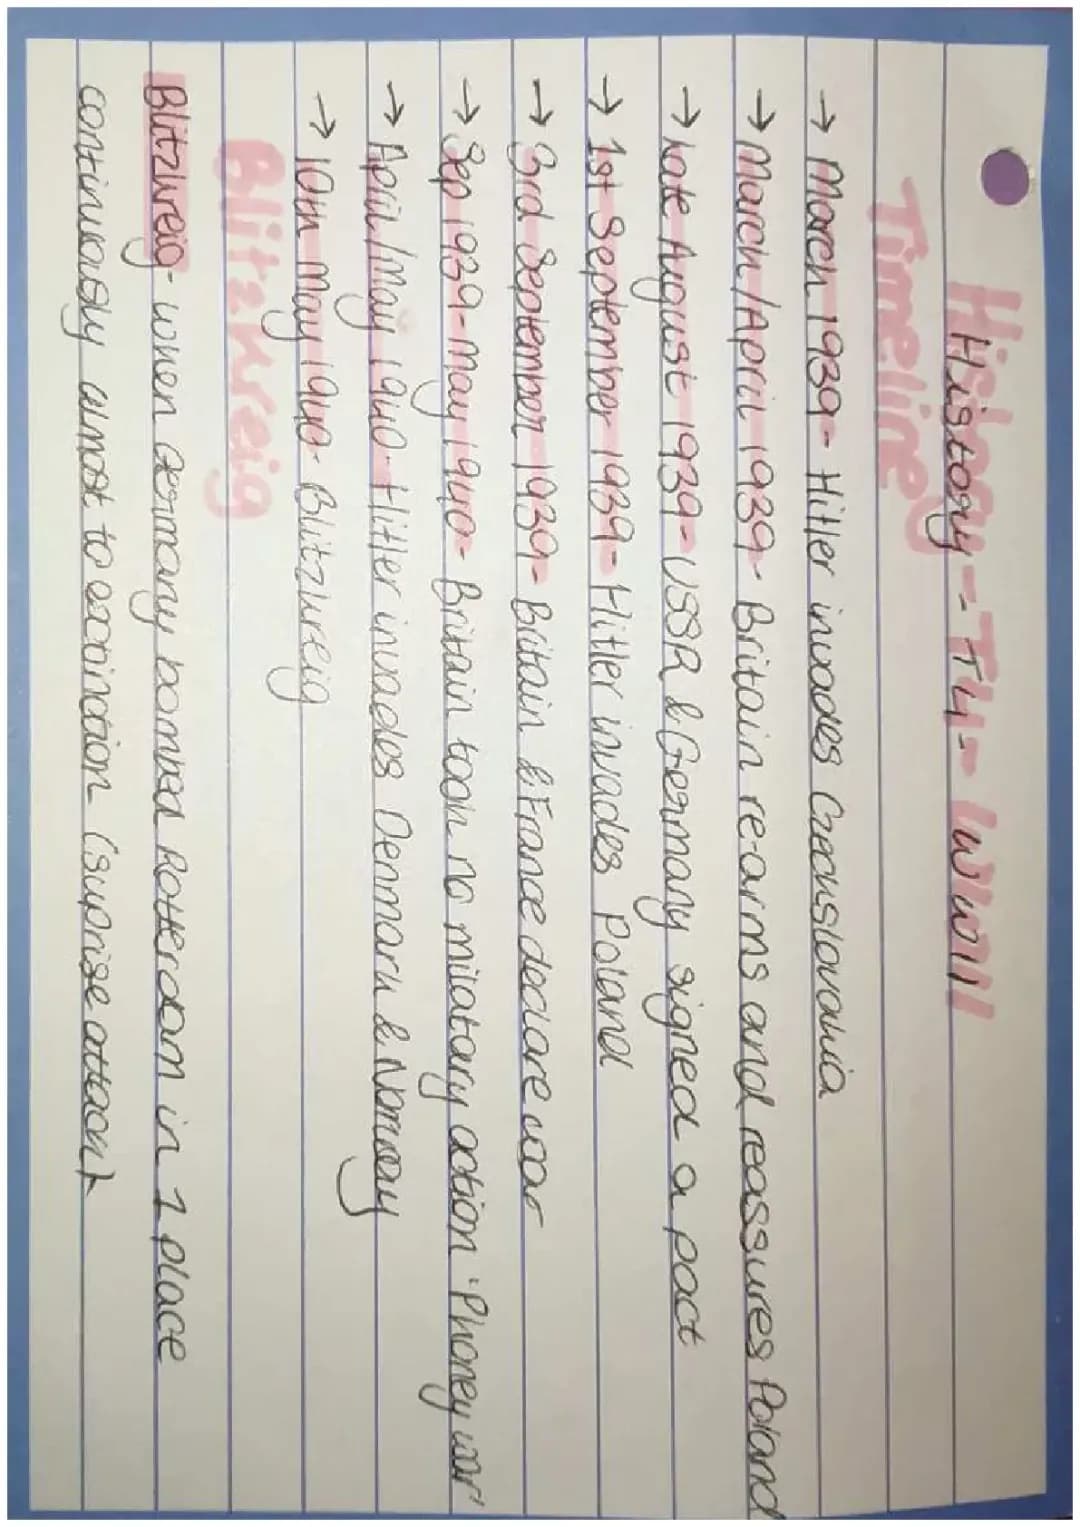 History - T4 - WWII
Timeline
→ March 1939 - Hitler invades Czechslovakia
→ March/April 1939 - Britain re-arms and reassures Poland
→ Late August 1939 - USSR & Germany signed a pact
→ 1st September 1939 - Hitler invades Poland
→ 3rd September 1939 - Britain & France declare war
→ Sep 1939 - May 1940 - Britain took no milatary action "Phoney war"
→ April/May 1940 - Hitler invades Denmark & Norway
→ 10th May 1940 - Blitzkreig
Blitzkreig
Blitzkreig - when Germany bombed Rotterdam in 1 place
continuously almost to extinction (suprise attack)